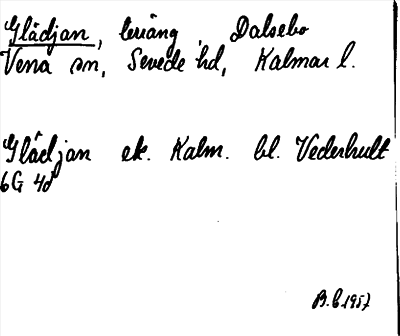 Glädjan, teräng Dalsebo
Vena sn, Sevede hd, Kalmar l.
Glädjan ek. Kalm. bl. Vederhult
6G 4d
B.E.1957